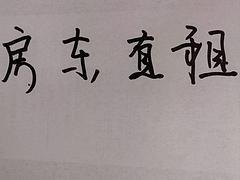 房东直租